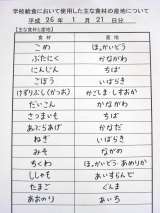 学校給食において使用した主な食材の産地について
平成 26年 1月 21日分
【主な食材と産地】
食材 産地
こめ ほっかいどう
ぶたにく かながわ
にんじん ちば
ごぼう いばらき
けずりぶし(かつお) かごしま しずおか
だいこん かながわ
さつまいも ちば
あぶらあげ かなだ
ねぎ いばらき
みそ ながの
ちくわ ほっかいどう あめりか
ししゃも あいすらんど
たまご ぐんま
あおのり あいち